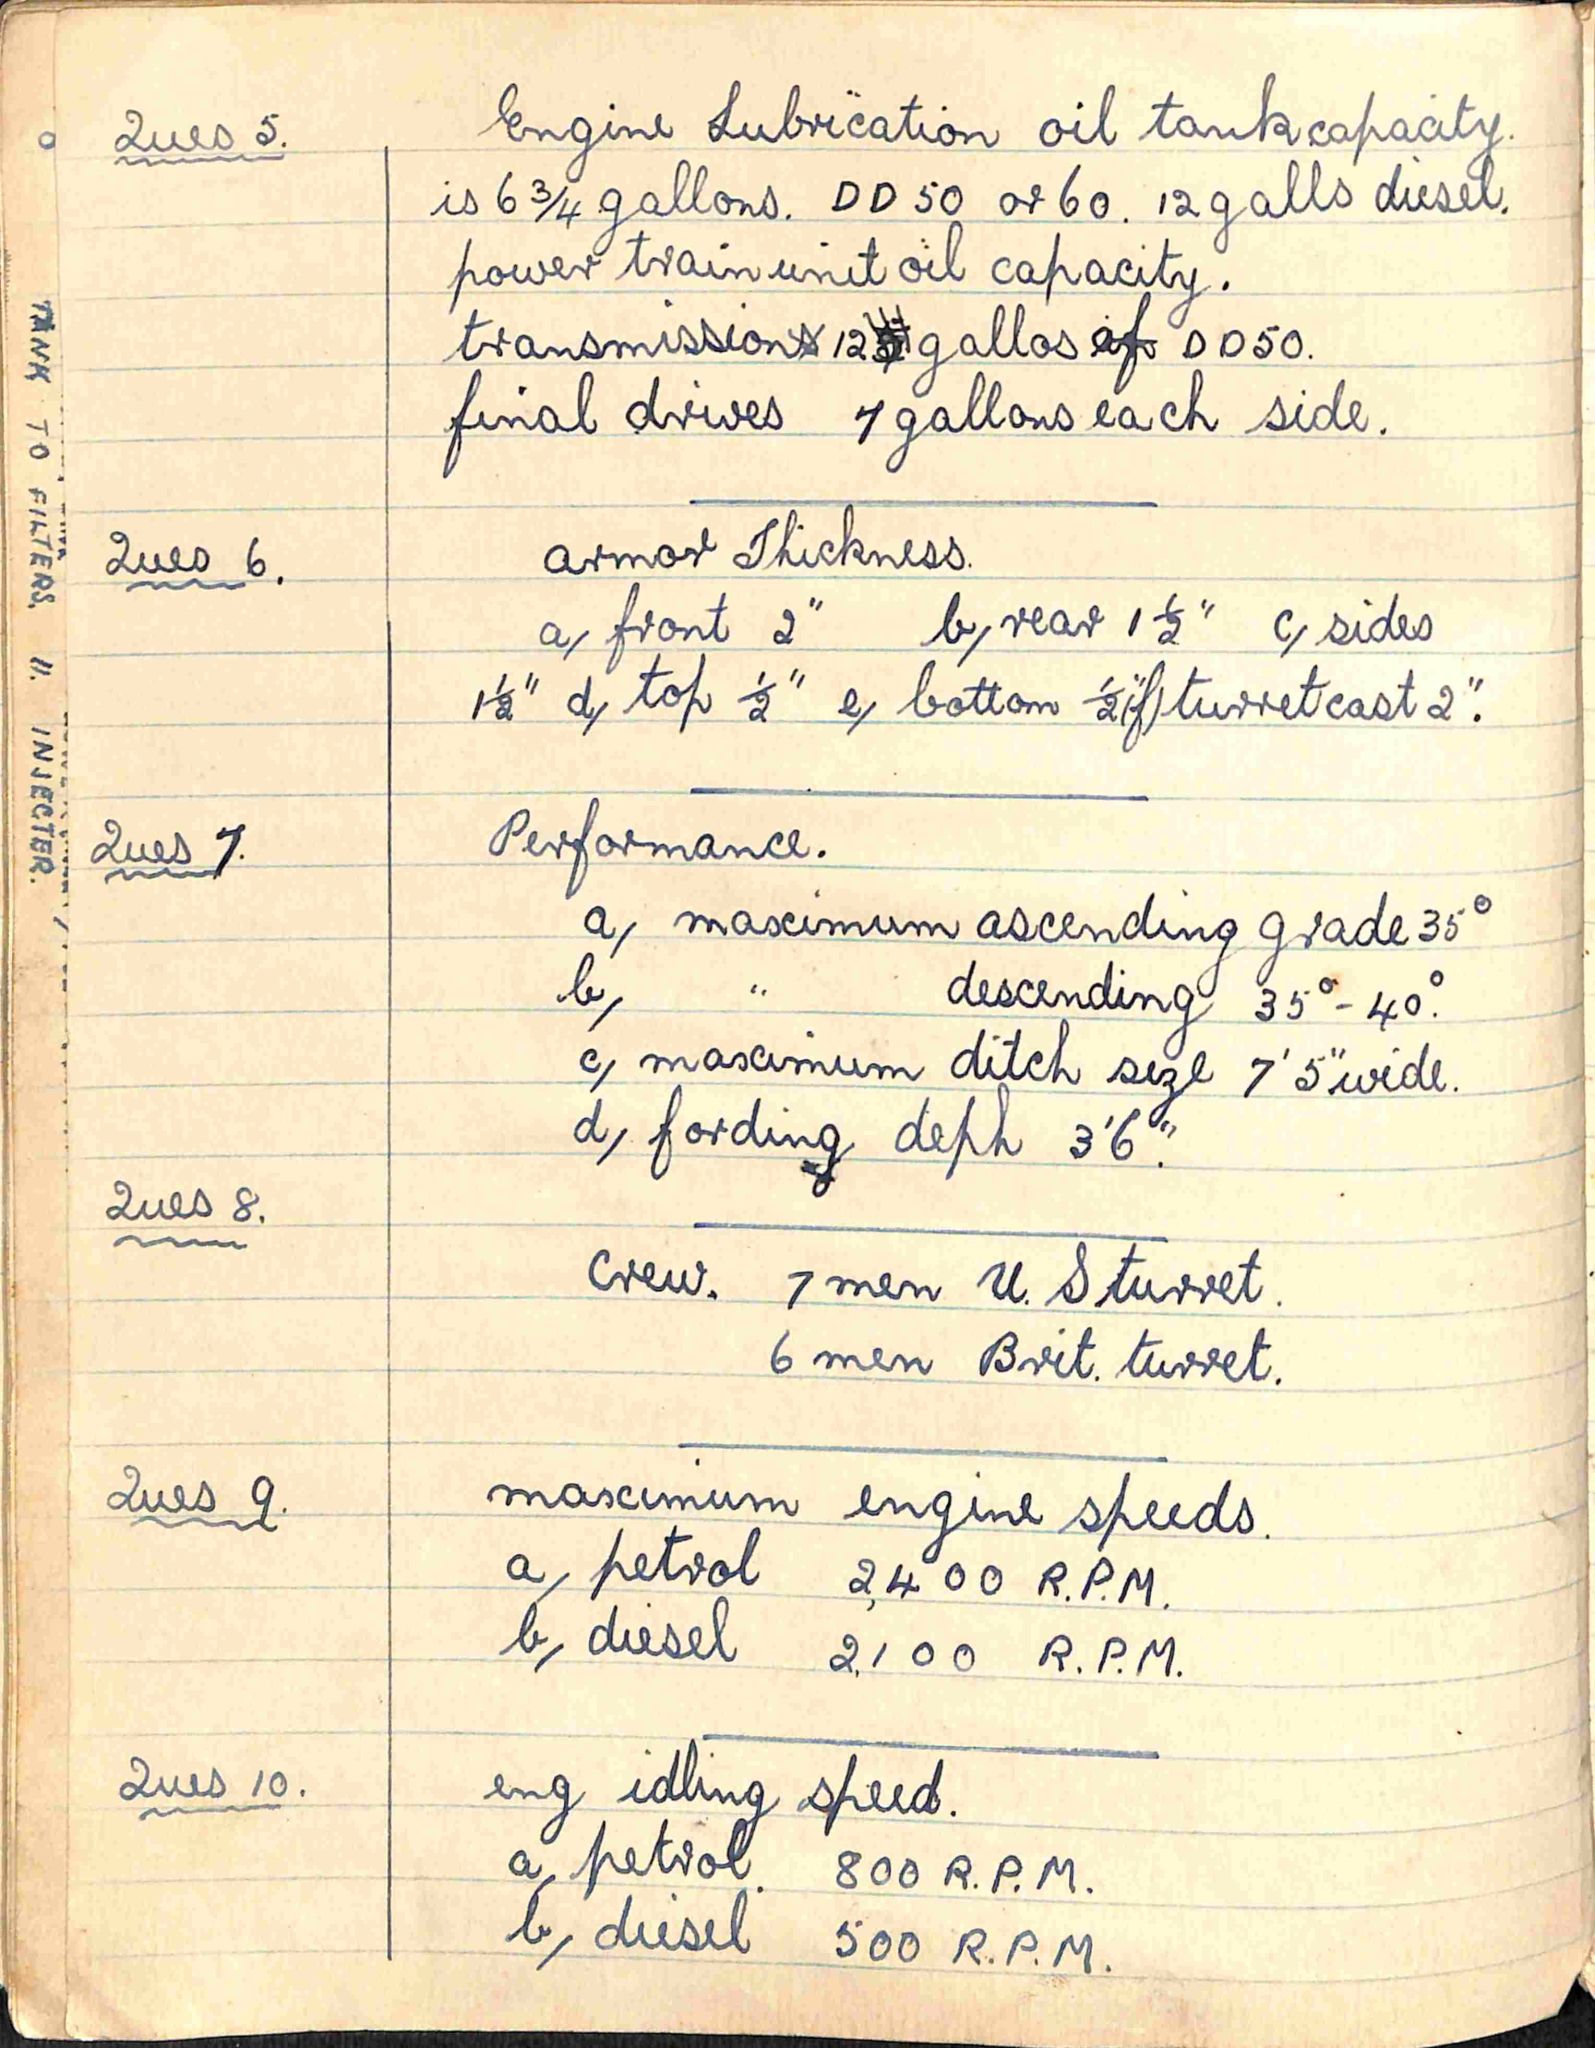 Ques 5. Engine Lubrication oil tank capacity.
is 6 3/4 gallons. DD 50 or 60. 12 galls diesel.
power train unit oil capacity.
transmission 12 gallos of DD50.
final drives 7 gallons each side.
Ques 6. armor Thickness.
a, front 2" b, rear 1 1/2" c, sides
1 1/2" d, top 1/2" e, bottom 1/2" (f) turret cast 2".
Ques 7. Performance.
a, maximum ascending grade 35°
b, " descending 35° - 40°.
c, maximum ditch size 7' 5" wide.
d, fording deph 3'6".
Ques 8.
Crew. 7 men U. S turret.
6 men Brit. turret.
Ques 9. maximum engine speeds.
a, petrol 2,400 R.P.M.
b, diesel 2,100 R.P.M.
Ques 10. eng idling speed.
a, petrol. 800 R.P.M.
b, diesel 500 R.P.M.
TANK TO FILTERS. ". INJECTER.